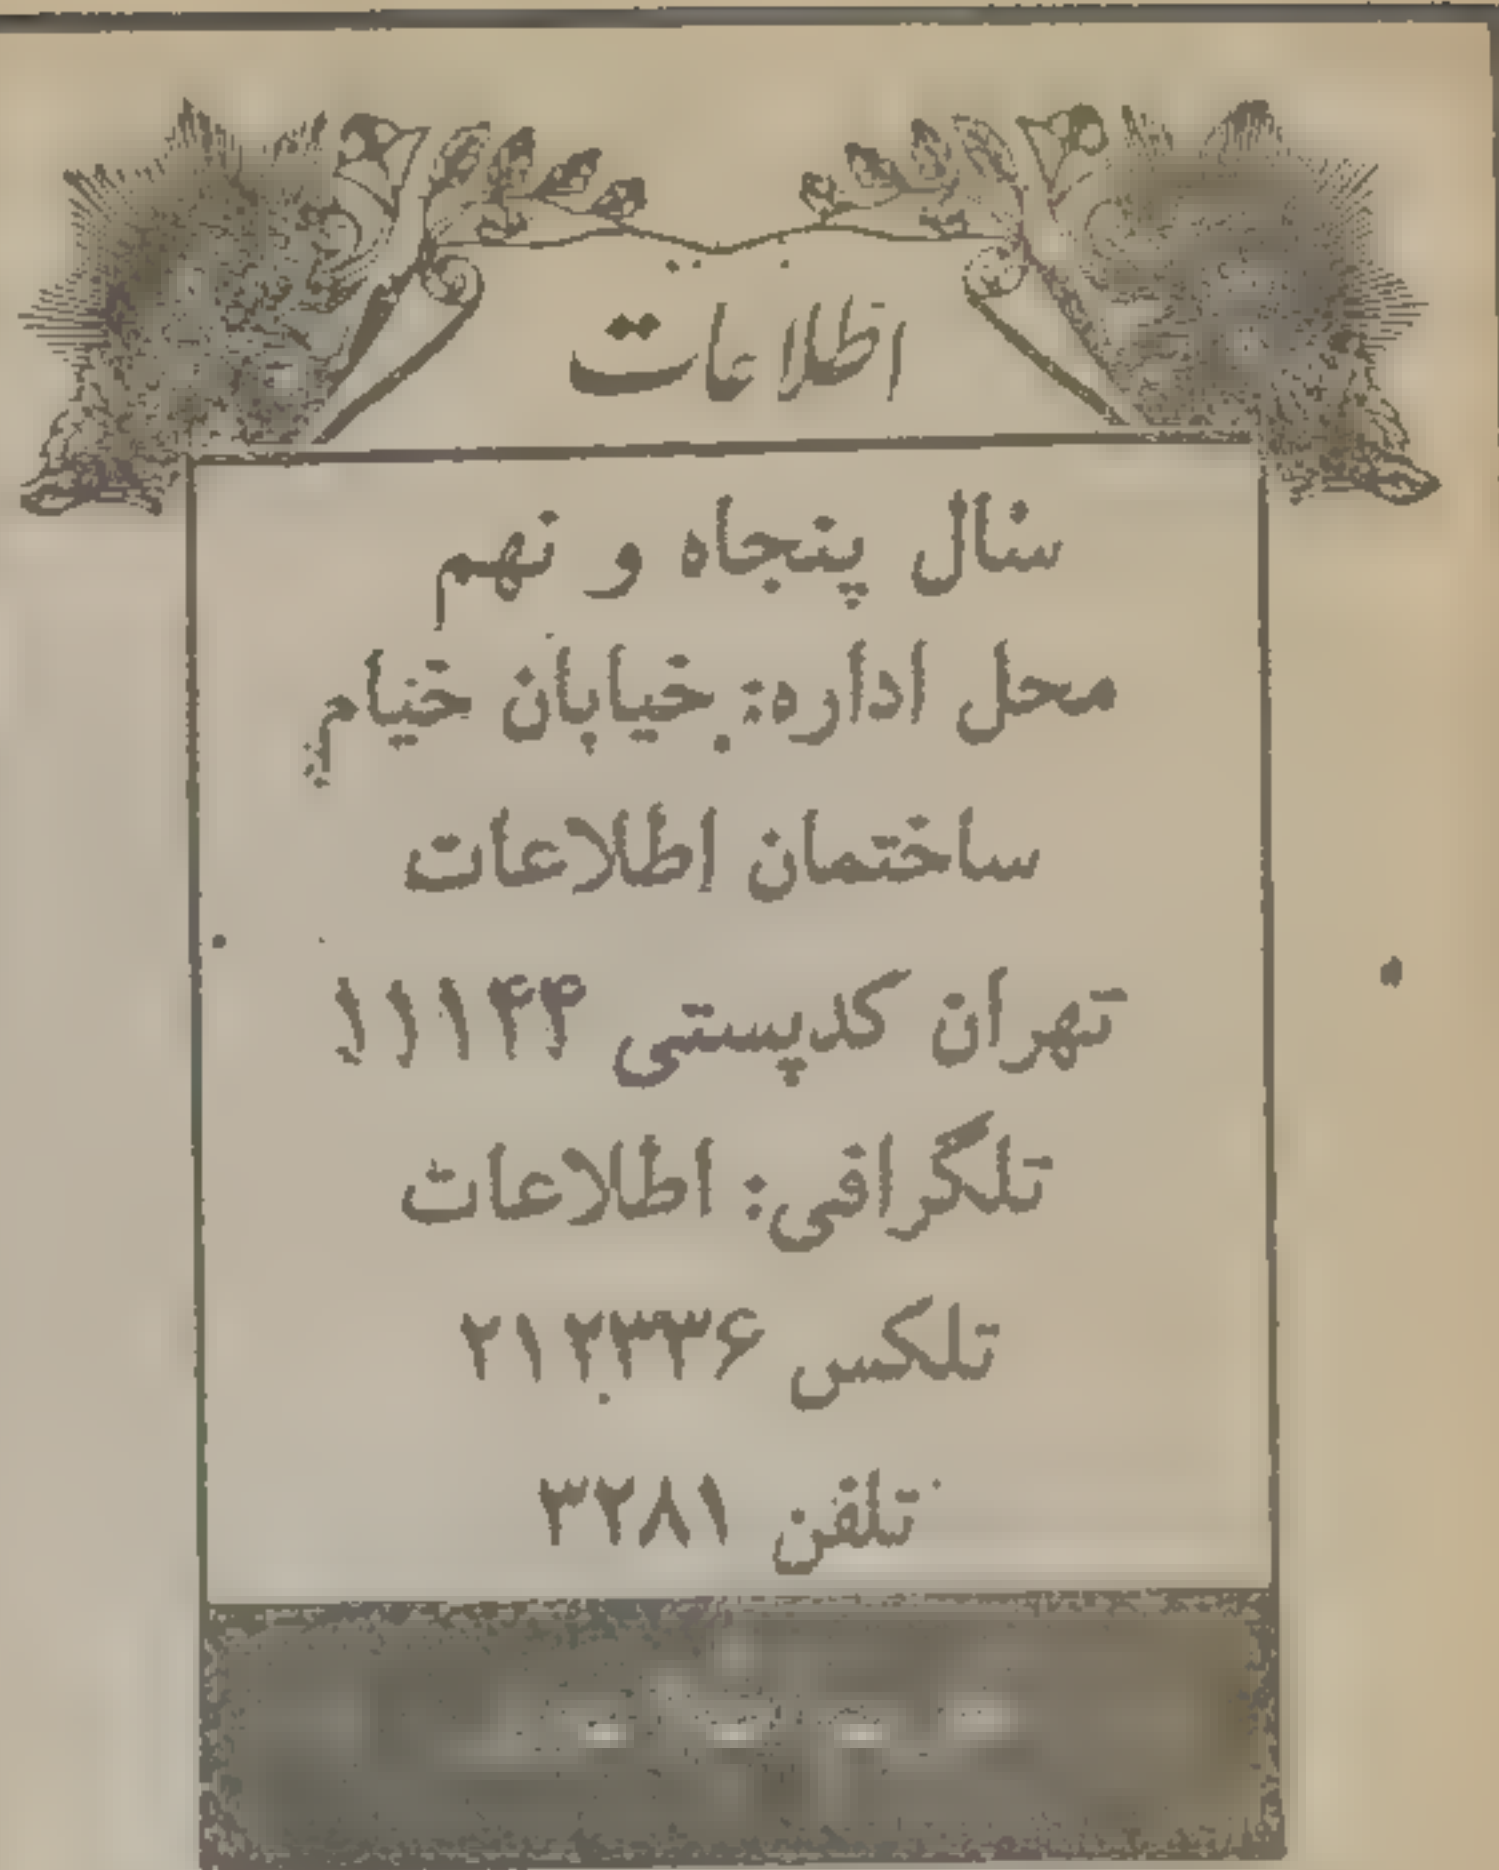 اطلاعات
سال پنجاه و نهم
محل اداره: خیابان خیام
ساختمان اطلاعات
تهران کدپستی ۱۱۱۴۴
تلگرافی: اطلاعات
تلکس ۲۱۲۳۳۶
تلفن ۳۲۸۱